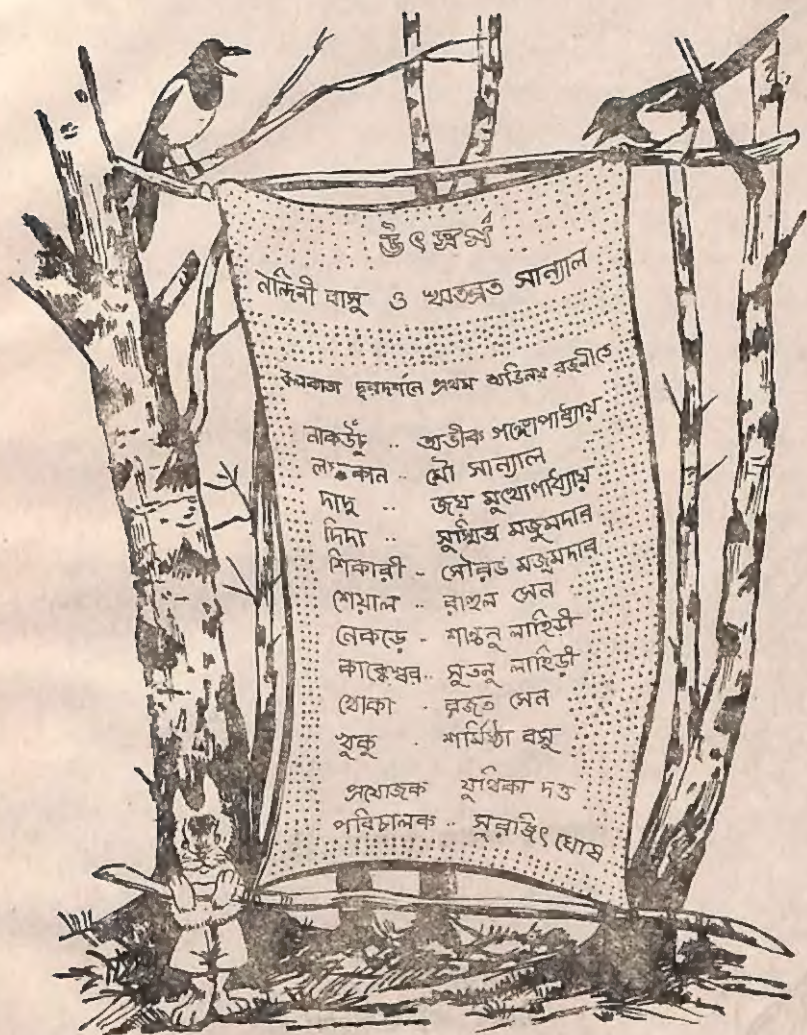 উৎসর্গ
নন্দিনী বাসু ও ঋতব্রত সান্যাল
কলকাতা দূরদর্শনে প্রথম অভিনয় রজনীতে
নাকউঁচু .. অভীক গঙ্গোপাধ্যায়
লম্বকান .. মৌ সান্যাল
দাদু .. জয় মুখোপাধ্যায়
দিদা .. সুস্মিতা মজুমদার
শিকারী - সৌরভ মজুমদার
শেয়াল .. রাহুল সেন
নেকড়ে - শান্তনু লাহিড়ী
কাক্কেশ্বর .. সুতনু লাহিড়ী
খোকা - রজত সেন
খুকু - শর্মিষ্ঠা বসু
প্রযোজক যূথিকা দত্ত
পরিচালক .. সুরজিৎ ঘোষ